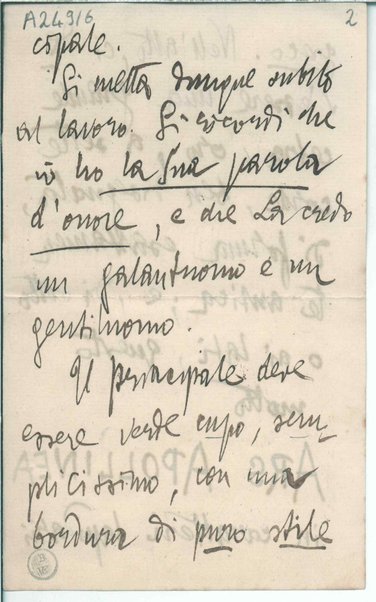 A249/6
2
cipale.
Si metta dunque subito
al lavoro. Si ricordi che
io ho la Sua parola
d'onore, e che La credo
un galantuomo e un
gentiluomo.
Il principale deve
essere verde cupo, sem
plicissimo, con una
bordura di puro stile